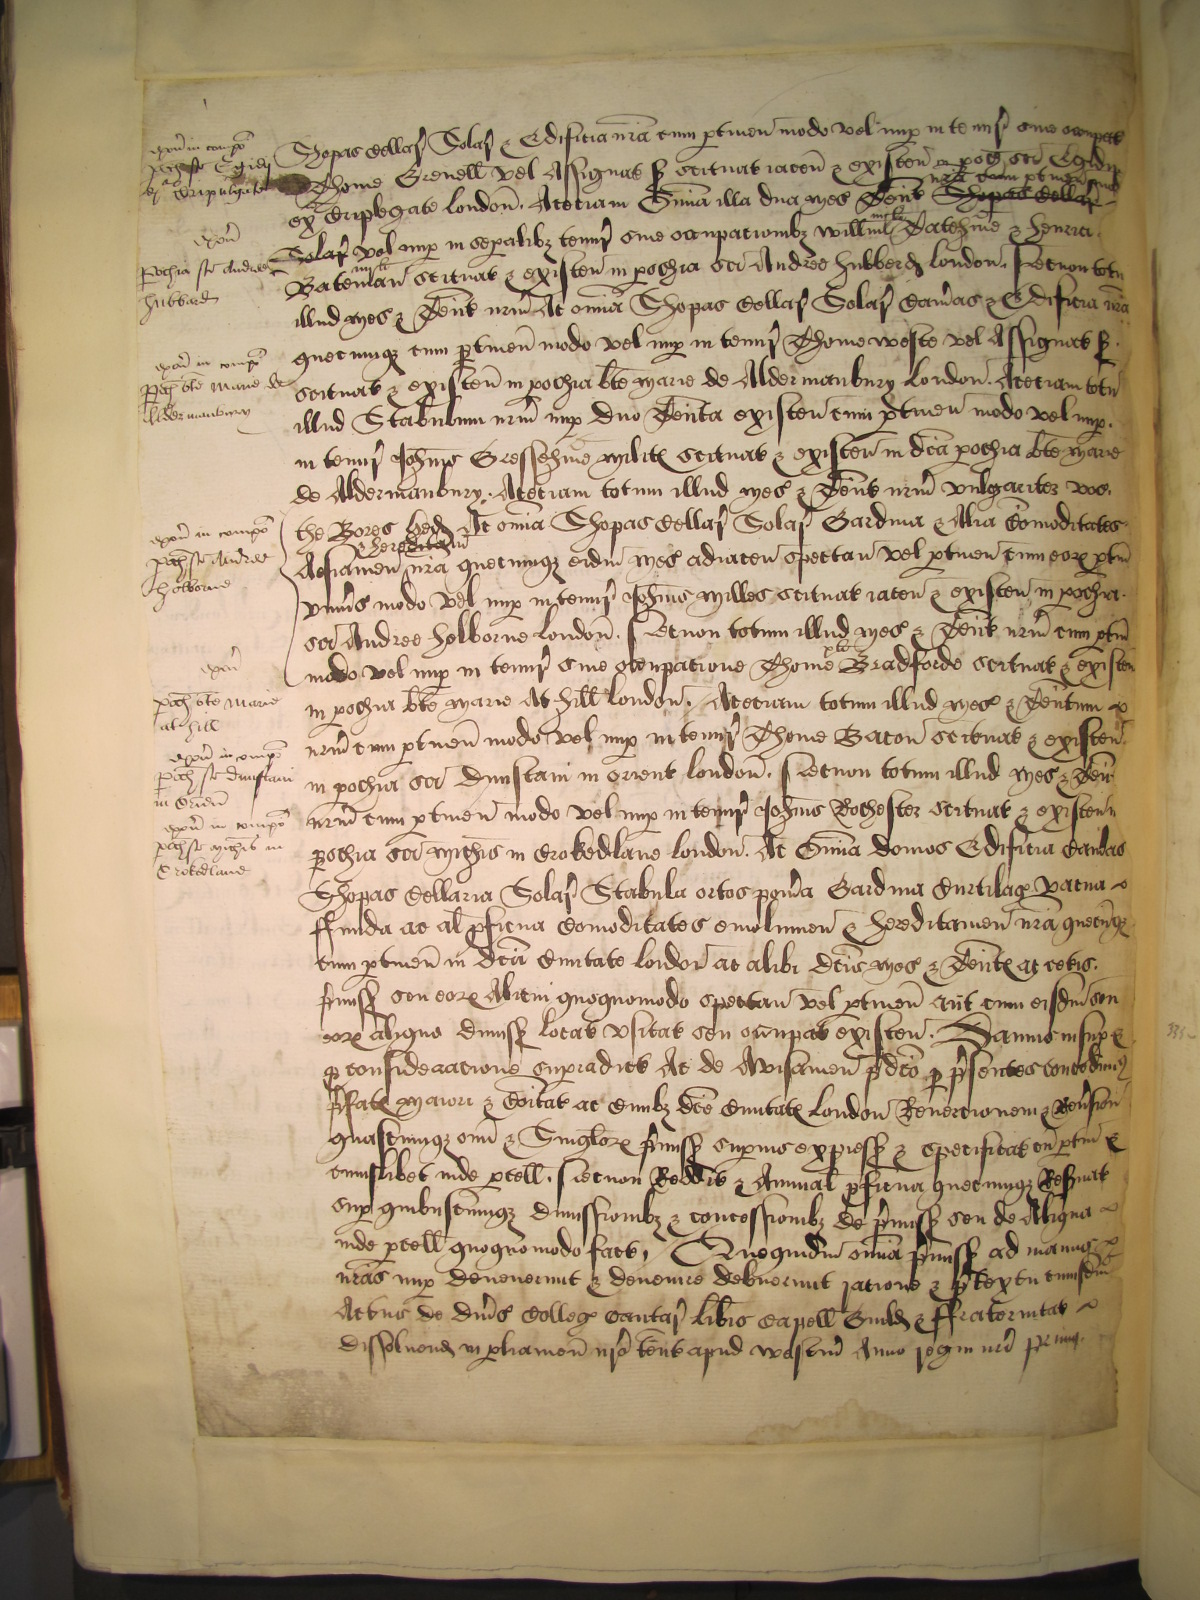 Shopas Cellar Solar & Edificia nra cum ptinen modo vel nup in tenur sive occupac
Thome Grenell vel Assignat s scituat iacen & existen in poch sci Egidij
ex Criplegate london. Aceciam Omia illa duo mes & Tent nra cum ptinen Shopas Cellar
Solar vel nup in sepalibz tenur sive occupacionibz Willmi Datchme & henrici
Bateman scituat & existen in pochia sci Andree hubberd london. Necnon totu
illud mes & Tent nrm Ac omia Shopas Cellar Solar Camas & Edificia nra
quecumqz cum ptinen modo vel nup in tenur Thome Weste vel Assignat s
scituat & existen in pochia bte marie de Aldermanbury london. Aceciam totu
illud Stabulum nrm nup duo Tenta existen cum ptinen modo vel nup
in tenur Johnis Gressehme milit scituat & existen in dca pochia bte marie
de Aldermanbury. Aceciam totum illud mes & Tent nrm vulgariter voc
the Bores hed Ac omia Shopas Cellar Solar Gardina & Alia Comoditates
& hereditam
Aesiamen nra quecumqz eidm mes adiacen spectan vel ptinen cum eor ptin
vnivs modo vel nup in tenur Johnis Milles scituat iacen & existen in pochia
sci Andree holborne london. Necnon totum illud mes & Tent nrm cum ptin
modo vel nup in tenur sive occupacione Thome Bradforde scituat & existen
in pochia bte marie At hill london. Aceciam totum illud mes & Tentum
nrm cum ptinen modo vel nup in tenur Thome Bacon scituat & existen
in pochia sci Dunstani in orient london. Necnon totum illud mes & Ten
nrm cum ptinen modo vel nup in tenur Johnis Rochester scituat & existen in
pochia sci Michis in Crokedlane london. Ac Omia domos Edificia Camas
Shopas Cellaria Solar Stabula ortos pomia Gardina Curtilag vacua
ffunda ac al pficua comoditates emolumen & hereditamen nra quecumqz
cum ptinen in dca Civitate london ac alibi dcis mes & Tent ac cetis
pmiss seu eor Alicui quoquomodo spectan vel ptinen aut cum eisdm seu
eor aliquo dimiss locat vsitat seu occupat existen. Damus insup &
p consideracione supradict Ac de Avisamen pdco p psentes concedimus
pfat Maiori & Coitat ac Civibz dce Civitat london Revercionem & Revsion
quascumqz oim & Singlor pmiss superius express & specificat cu ptin &
cuiuslibet inde pcell. Necnon Reddit & Annual pficua quecumqz Resvat
sup quibuscumqz dimissionibz & concessionibz de pmiss seu de Aliqua
inde pcell quoquomodo fact, Que quidm omia pmiss ad manus
nras nup devenerunt & devenire debuerunt racione & ptextu cuiusdm
Actus de divs Colleg Cantar libis Capell Guild & ffraternitat
dissoluend in pliamen nro tent apud westm Anno regni nri primo

poch ste Egidij
ex Cripulgate
pochia ste Andree
hubberd
poch bte Marie de
Aldermanbury
poch ste Andree
Holborne
poch bte Marie
at hill
poch ste dunstani
in Orien
poch ste Michis in
Crokedlane